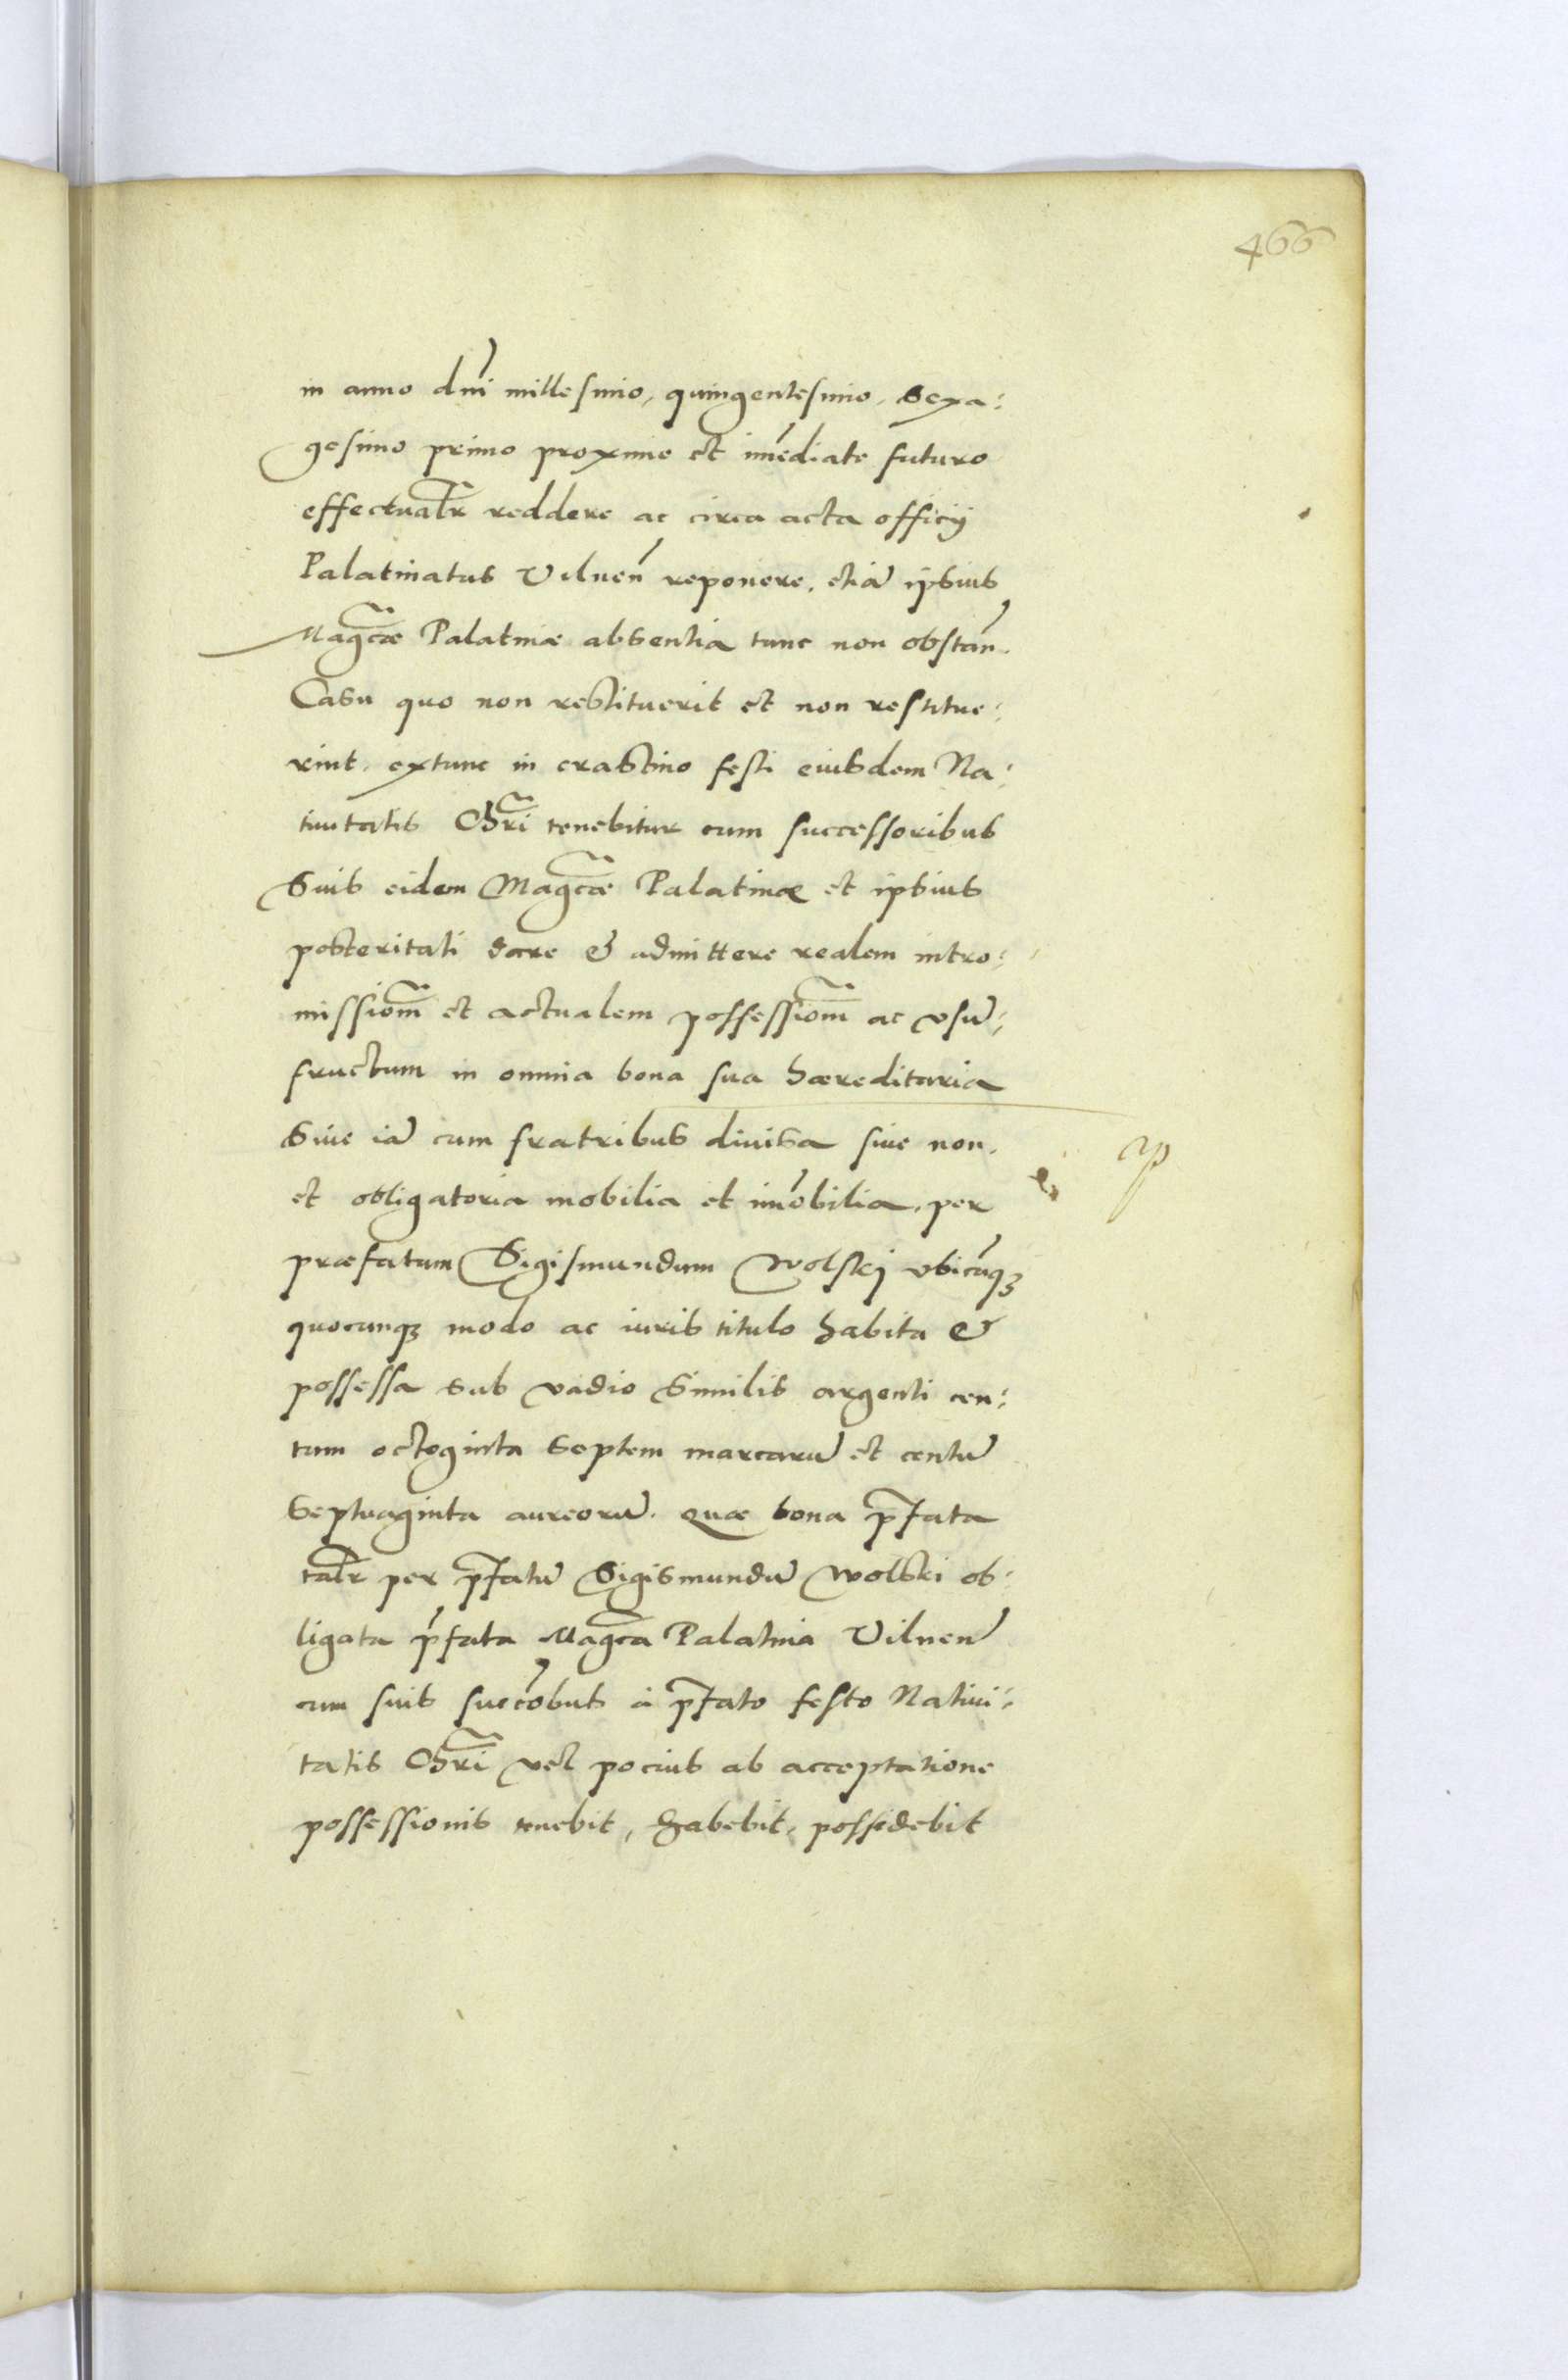 466
in anno dni millesimo, quingentesimo, Sexa:
gesimo primo proximo et imediate futuro
effectualr reddere ac circa acta officij
Palatinatus Vilnen reponere, etia ipsius
Magcae Palatinae absentia tunc non obstan.
Casu quo non restituerit et non restitue:
rint, extunc in crastino festi eiusdem Na:
tiuitatis Chri tenebitur cum successoribus
Suis eidem Magcae Palatinae et ipsius
posteritati dare & admittere realem intro:
missiom et actualem possessiom ac vsu:
fructum in omnia bona sua haereditaria
Siue ia cum fratribus diuisa siue non,
et obligatoria mobilia et imobilia, per
praefatum Sigismundum Wolskj vbicuqꝫ
quocunqꝫ modo ac iuris titulo habita &
possessa sub vadio Similis argenti cen:
tum octoginta Septem marcaru et centu
Septuaginta aureoru. Quae bona pfata
talr per pfatu Sigismundu Wolski ob:
ligata pfata Magca Palatina Vilnen
cum suis succobus à pfato festo Natiui:
tatis Chri vel pocius ab acceptatione
possessionis tenebit, habebit, possidebit